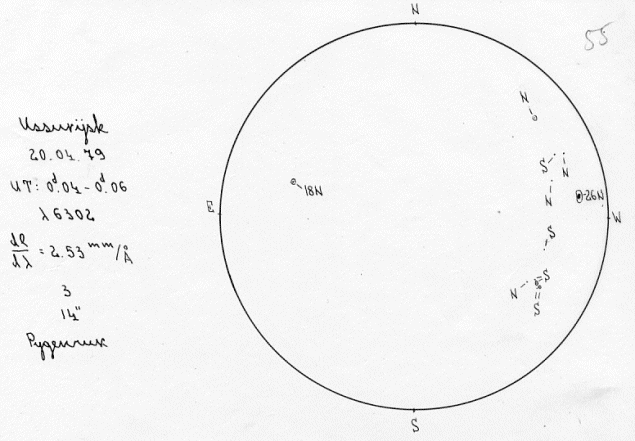 N
55
N
Ussurijsk
20.04.79
UT: 0ᵈ.04 - 0ᵈ.06
λ 6302
dl/dλ = 2.53 mm/Å
3
14"
Руденчик
S
N
18N
N
26N
E
W
S
S
N
S
S